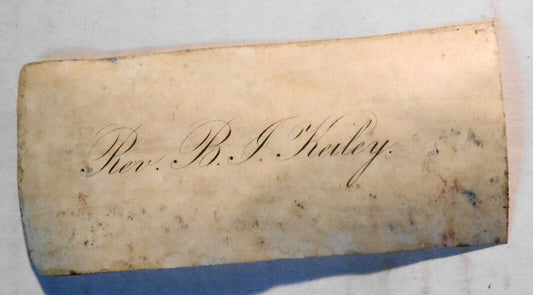 Rev. B. J. Keiley.